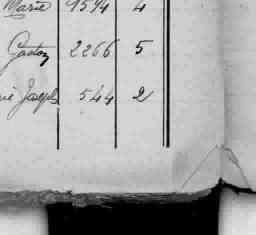 Marie 1594 4
Gaston 2266 5
Joseph 544 2